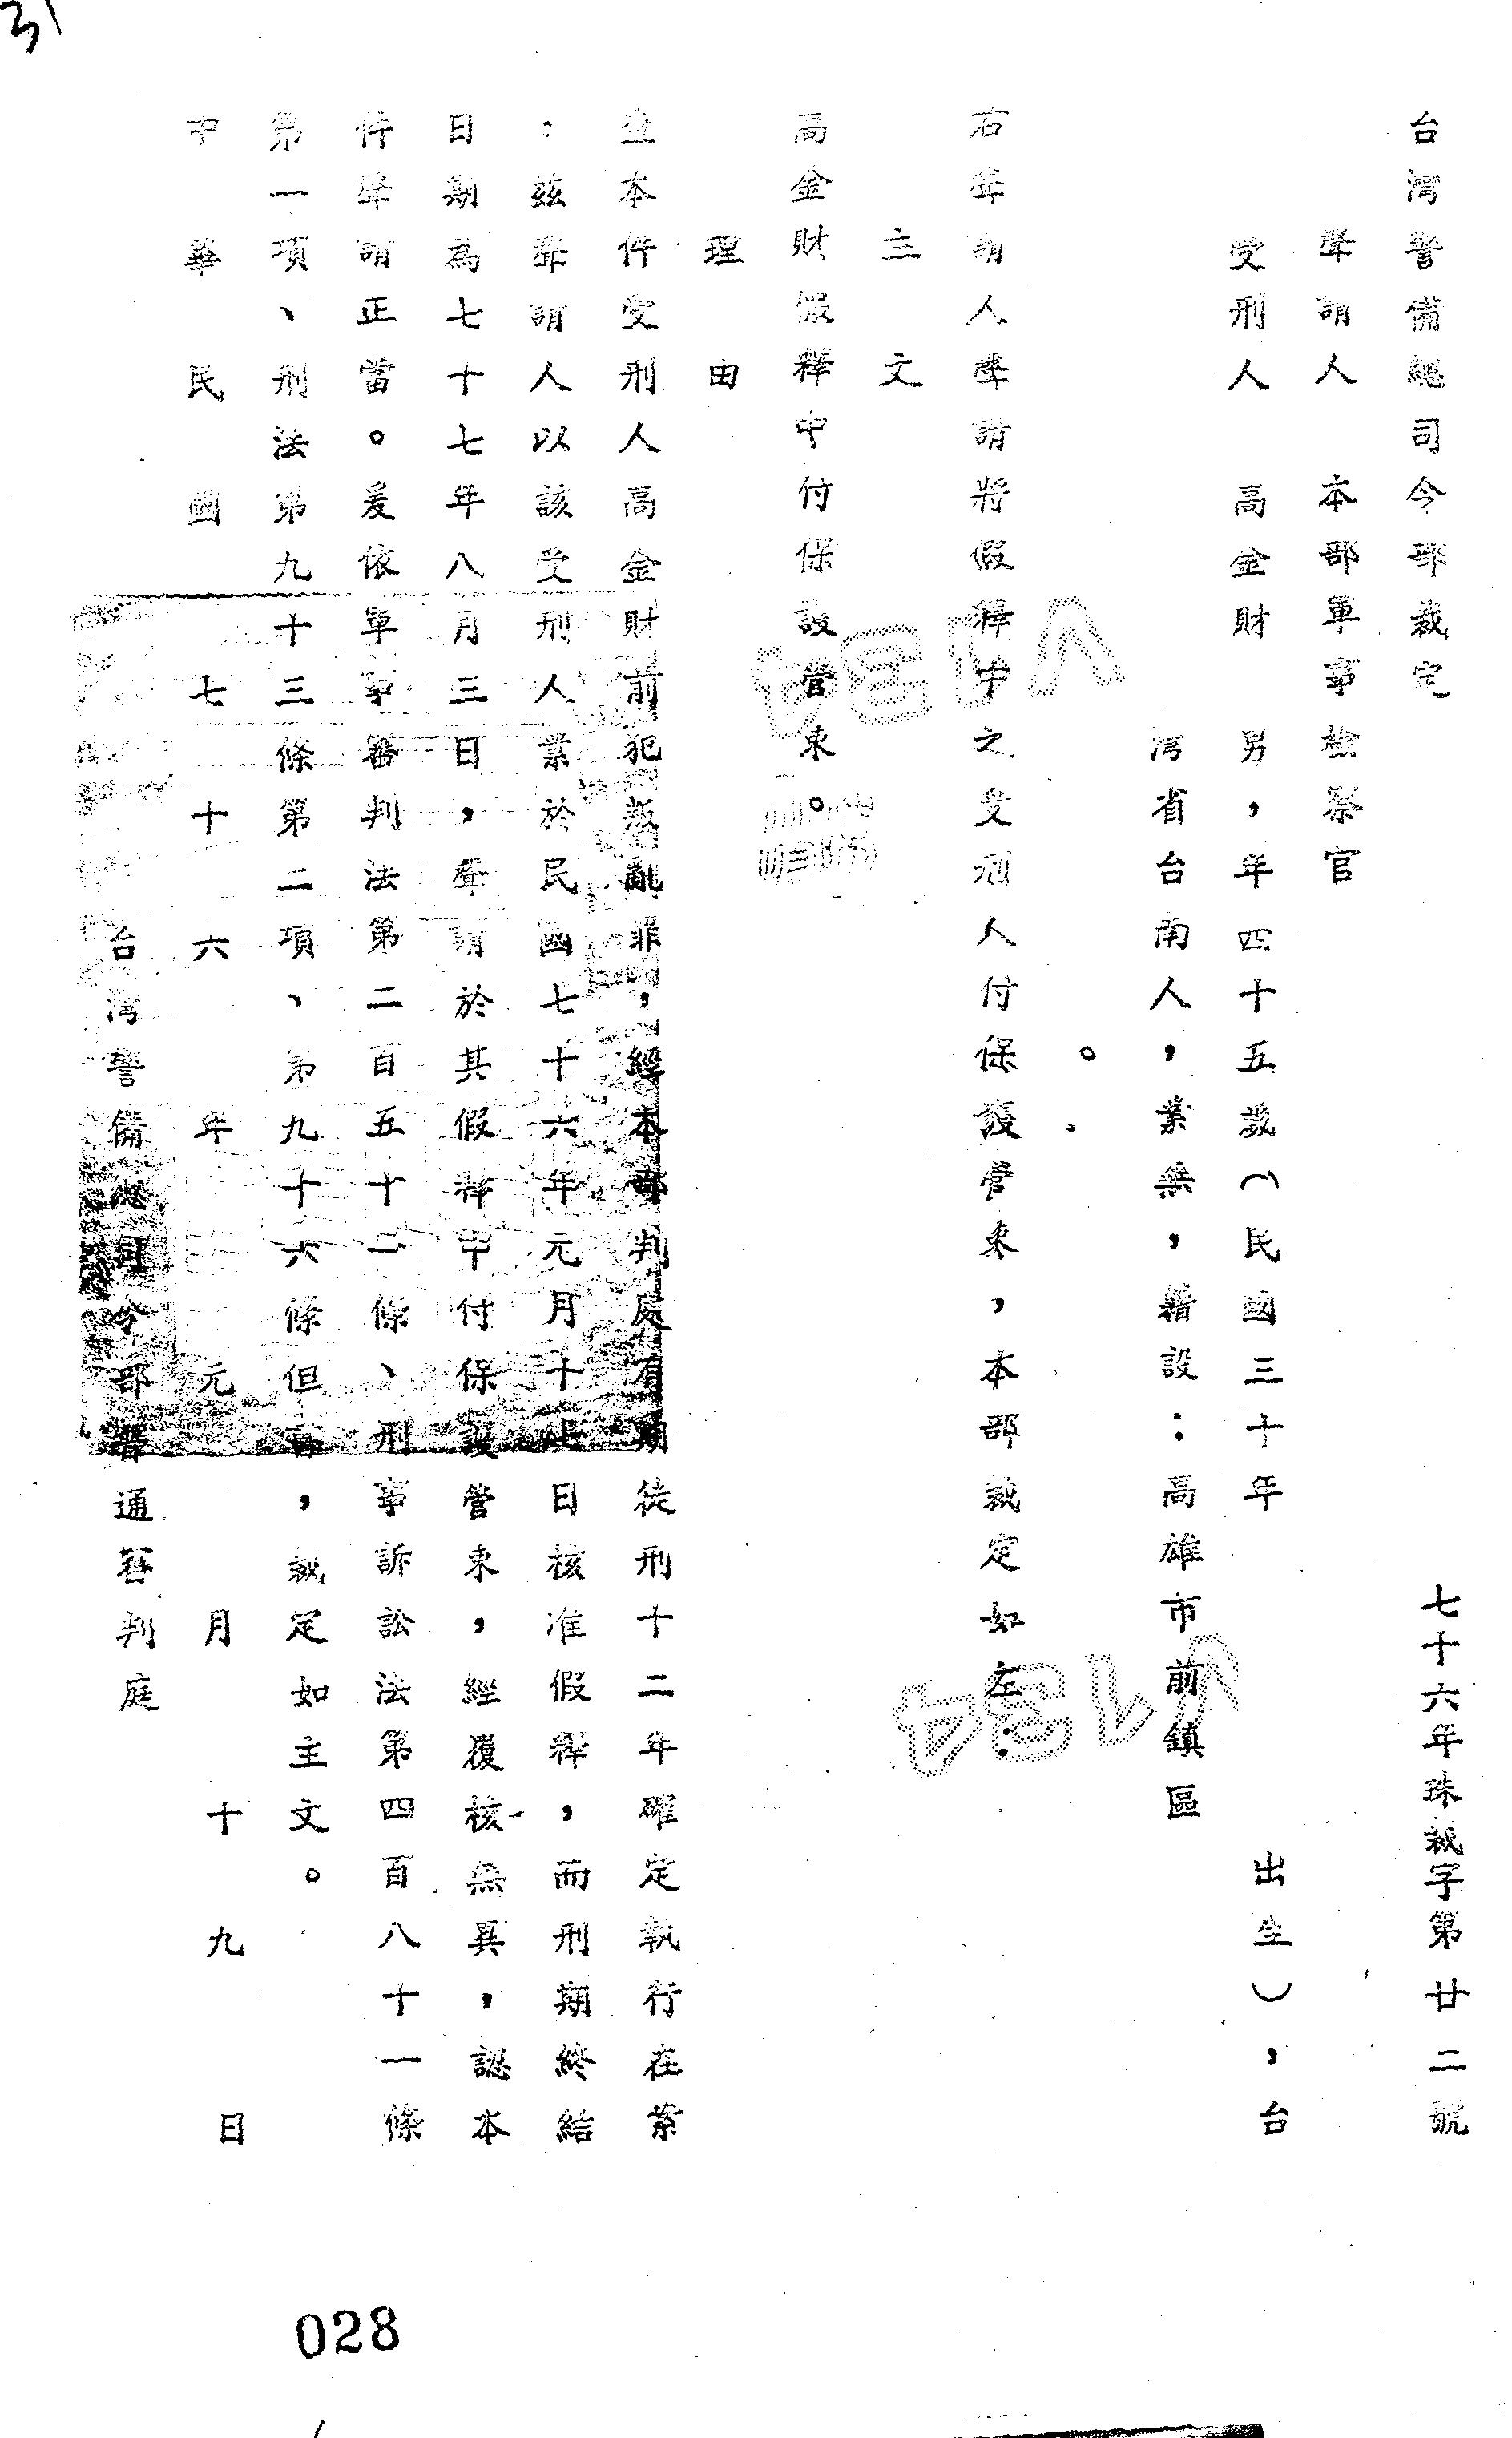 31
台灣警備總司令部裁定
七十六年珠裁字第廿二號
聲請人　本部軍事檢察官
受刑人　高金財　男，年四十五歲（民國三十年　出生），台
灣省台南人，業無，籍設：高雄市前鎮區
。
右聲請人聲請將假釋中之受刑人付保護管束，本部裁定如左：
主　文
高金財假釋中付保護管束。
理　由
查本件受刑人高金財前犯叛亂罪，經本部判處有期徒刑十二年確定執行在案
，茲聲請人以該受刑人業於民國七十六年元月十七日核准假釋，而刑期終結
日期為七十七年八月三日，聲請於其假釋中付保護管束，經覆核無異，認本
件聲請正當。爰依軍事審判法第二百五十一條、刑事訴訟法第四百八十一條
第一項、刑法第九十三條第二項、第九十六條但書，裁定如主文。
中華民國七十六年元月十九日
台灣警備總司令部普通審判庭
V134
V134
028